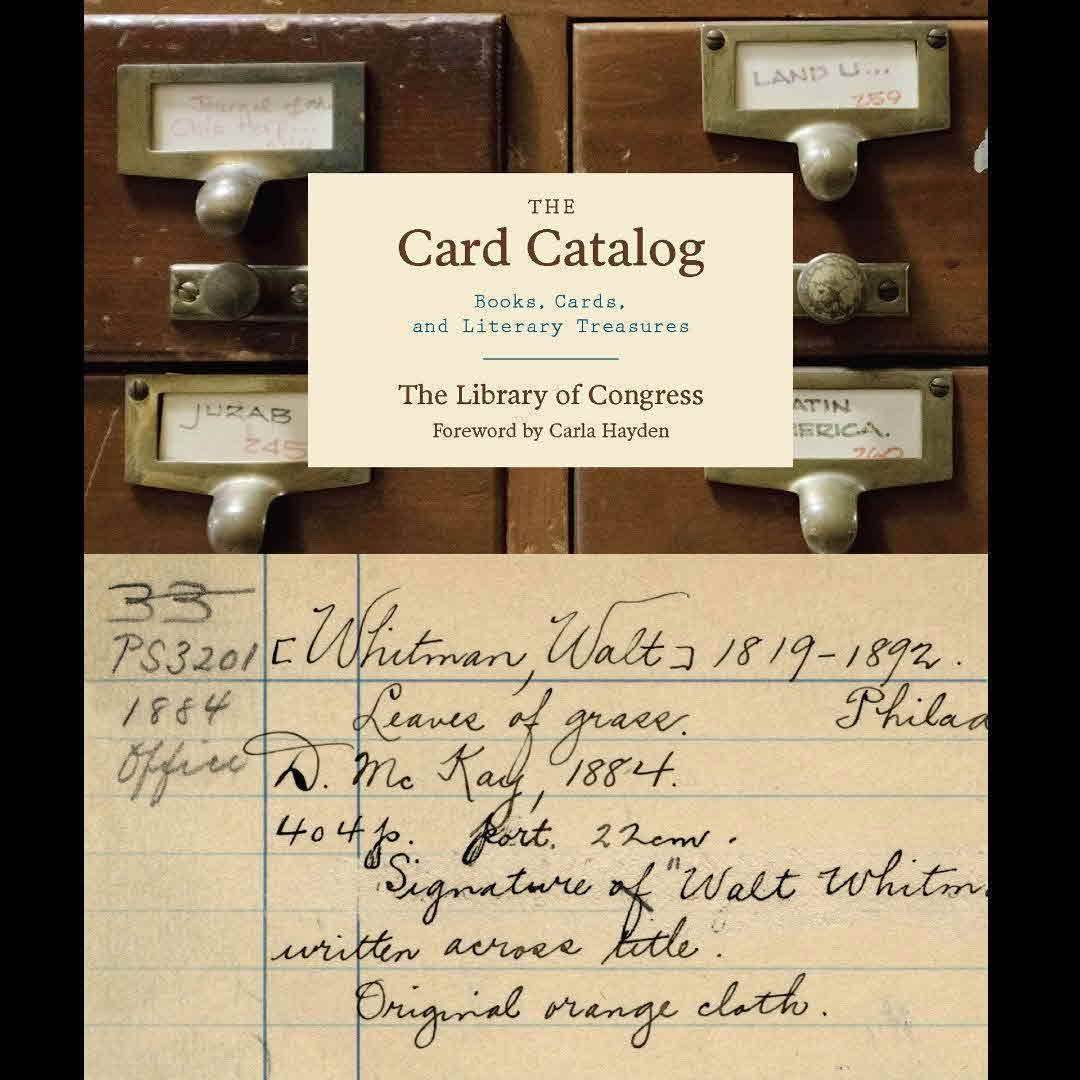 Journal of the
Ohio Herp...
LAND U...
259
THE
Card Catalog
Books, Cards,
and Literary Treasures
The Library of Congress
Foreword by Carla Hayden
JUZAB
245
ATIN
ERICA.
260
33
PS3201 [Whitman, Walt] 1819-1892.
1884 Leaves of grass. Philad
Office D. McKay, 1884.
404 p. port. 22cm.
"Signature of "Walt Whitm
written across title".
Original orange cloth.